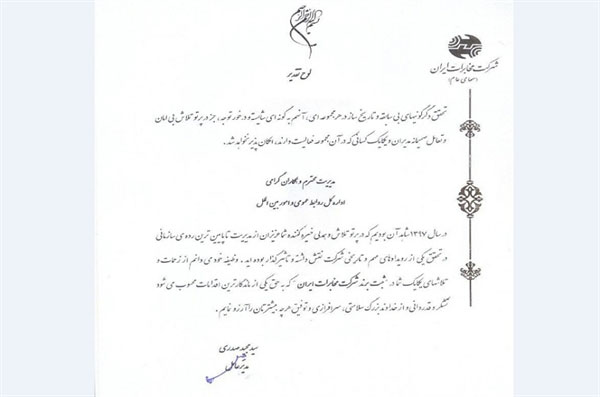 بسم الله الرحمن الرحیم
لوح تقدیر
شرکت مخابرات ایران
(سهامی عام)
تحقق دگرگونیهای بی سابقه و تاریخ ساز در هر مجموعه ای، آنهم به گونه ای شایسته و در خور توجه، جز در پرتو تلاش بی امان
و تعامل صمیمانه مدیران و یکایک کسانی که در آن مجموعه فعالیت دارند، امکان پذیر نخواهد شد.
مدیریت محترم و همکاران گرامی
اداره کل روابط عمومی و امور بین الملل
در سال ۱۳۹۷ شاهد آن بودیم که در پرتو تلاش و همدلی خیره کننده شما عزیزان از مدیریت تا پایین ترین رده ی سازمانی
در تحقق یکی از رویدادهای مهم و تاریخی شرکت نقش داشته و تاثیرگذار بوده اید. وظیفه خود می دانم از زحمات و
تلاشهای یکایک شما در "ثبت برند شرکت مخابرات ایران" که به حق یکی از ماندگارترین اقدامات محسوب می شود
تشکر و قدردانی و از خداوند بزرگ سلامتی، سرافرازی و توفیق هر چه بیشترتان را آرزو نمایم.
سید مجید صدری
مدیرعامل